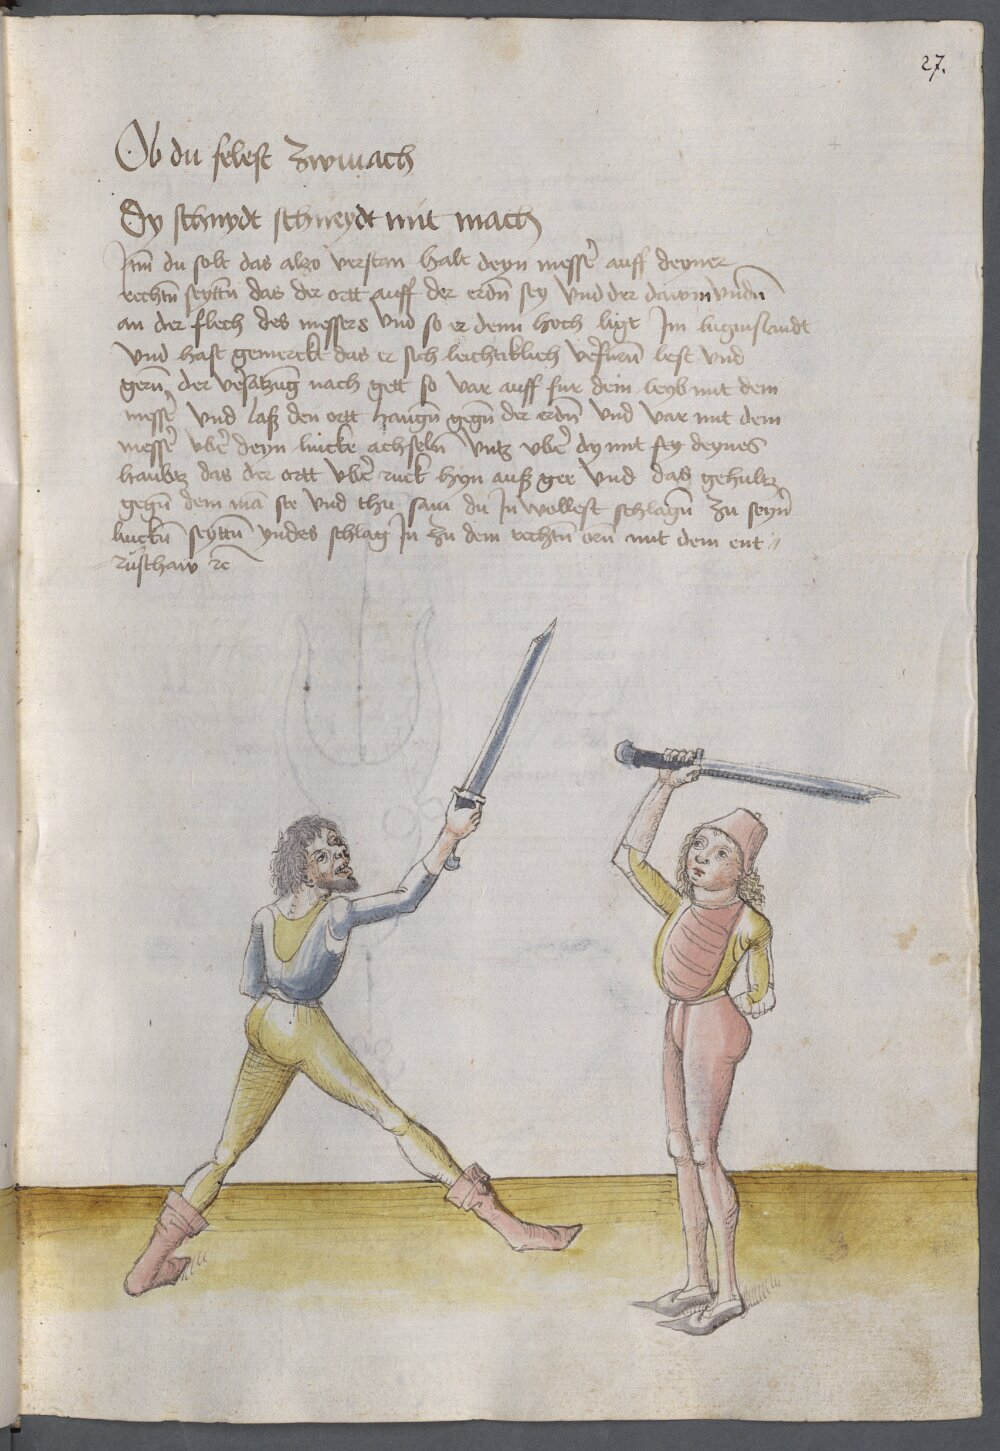 27.
Ob du felest zwmach
Dy schnydt schneydt mit mach
Jm̄ du solt das also verstan halt deyn messer̄ auff deyner
rechtn̄ seyttn̄ das der ortt auff der erdn̄ sey vnd der dawm vndn̄
an der flech des messers vnd so er denn hoch ligt Jm luginslandt
vnd hast gemerckt das er sich leichtiklich verfuren̄ lest vnd
gern̄ der versatzūg nach gett so var auff fur dein leyb mit dem
messer̄ vnd laß den ortt hangn̄ gegn̄ der erdn̄ vnd var mit dem
messer̄ vber̄ deyn lincke achseln̄ vntz vber̄ dy mit deynes
haubtz das der ortt vber̄ ruck hyn auß gee vnd das gehultz
gegn̄ dem mā ste vnd thu sam du Jn wollest schlagn̄ zu seyn̄
linckn̄ seyttn̄ yndes schlag Jn zu dem rechtn̄ orn̄ mit dem ent〃
rusthaw rc̄